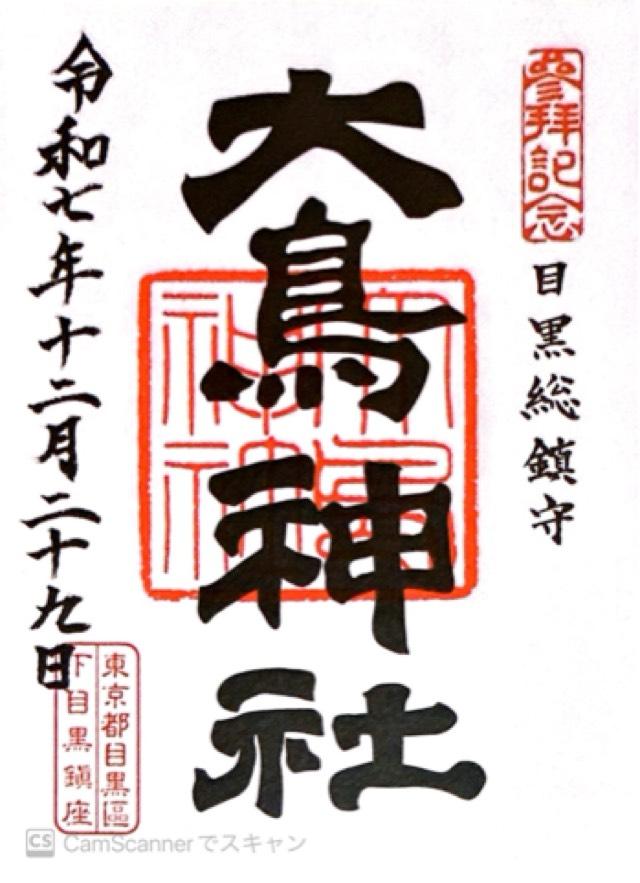 参拝記念
目黒総鎮守
大鳥神社
令和七年十二月二十九日
東京都目黒區
下目黒鎮座
CS CamScannerでスキャン